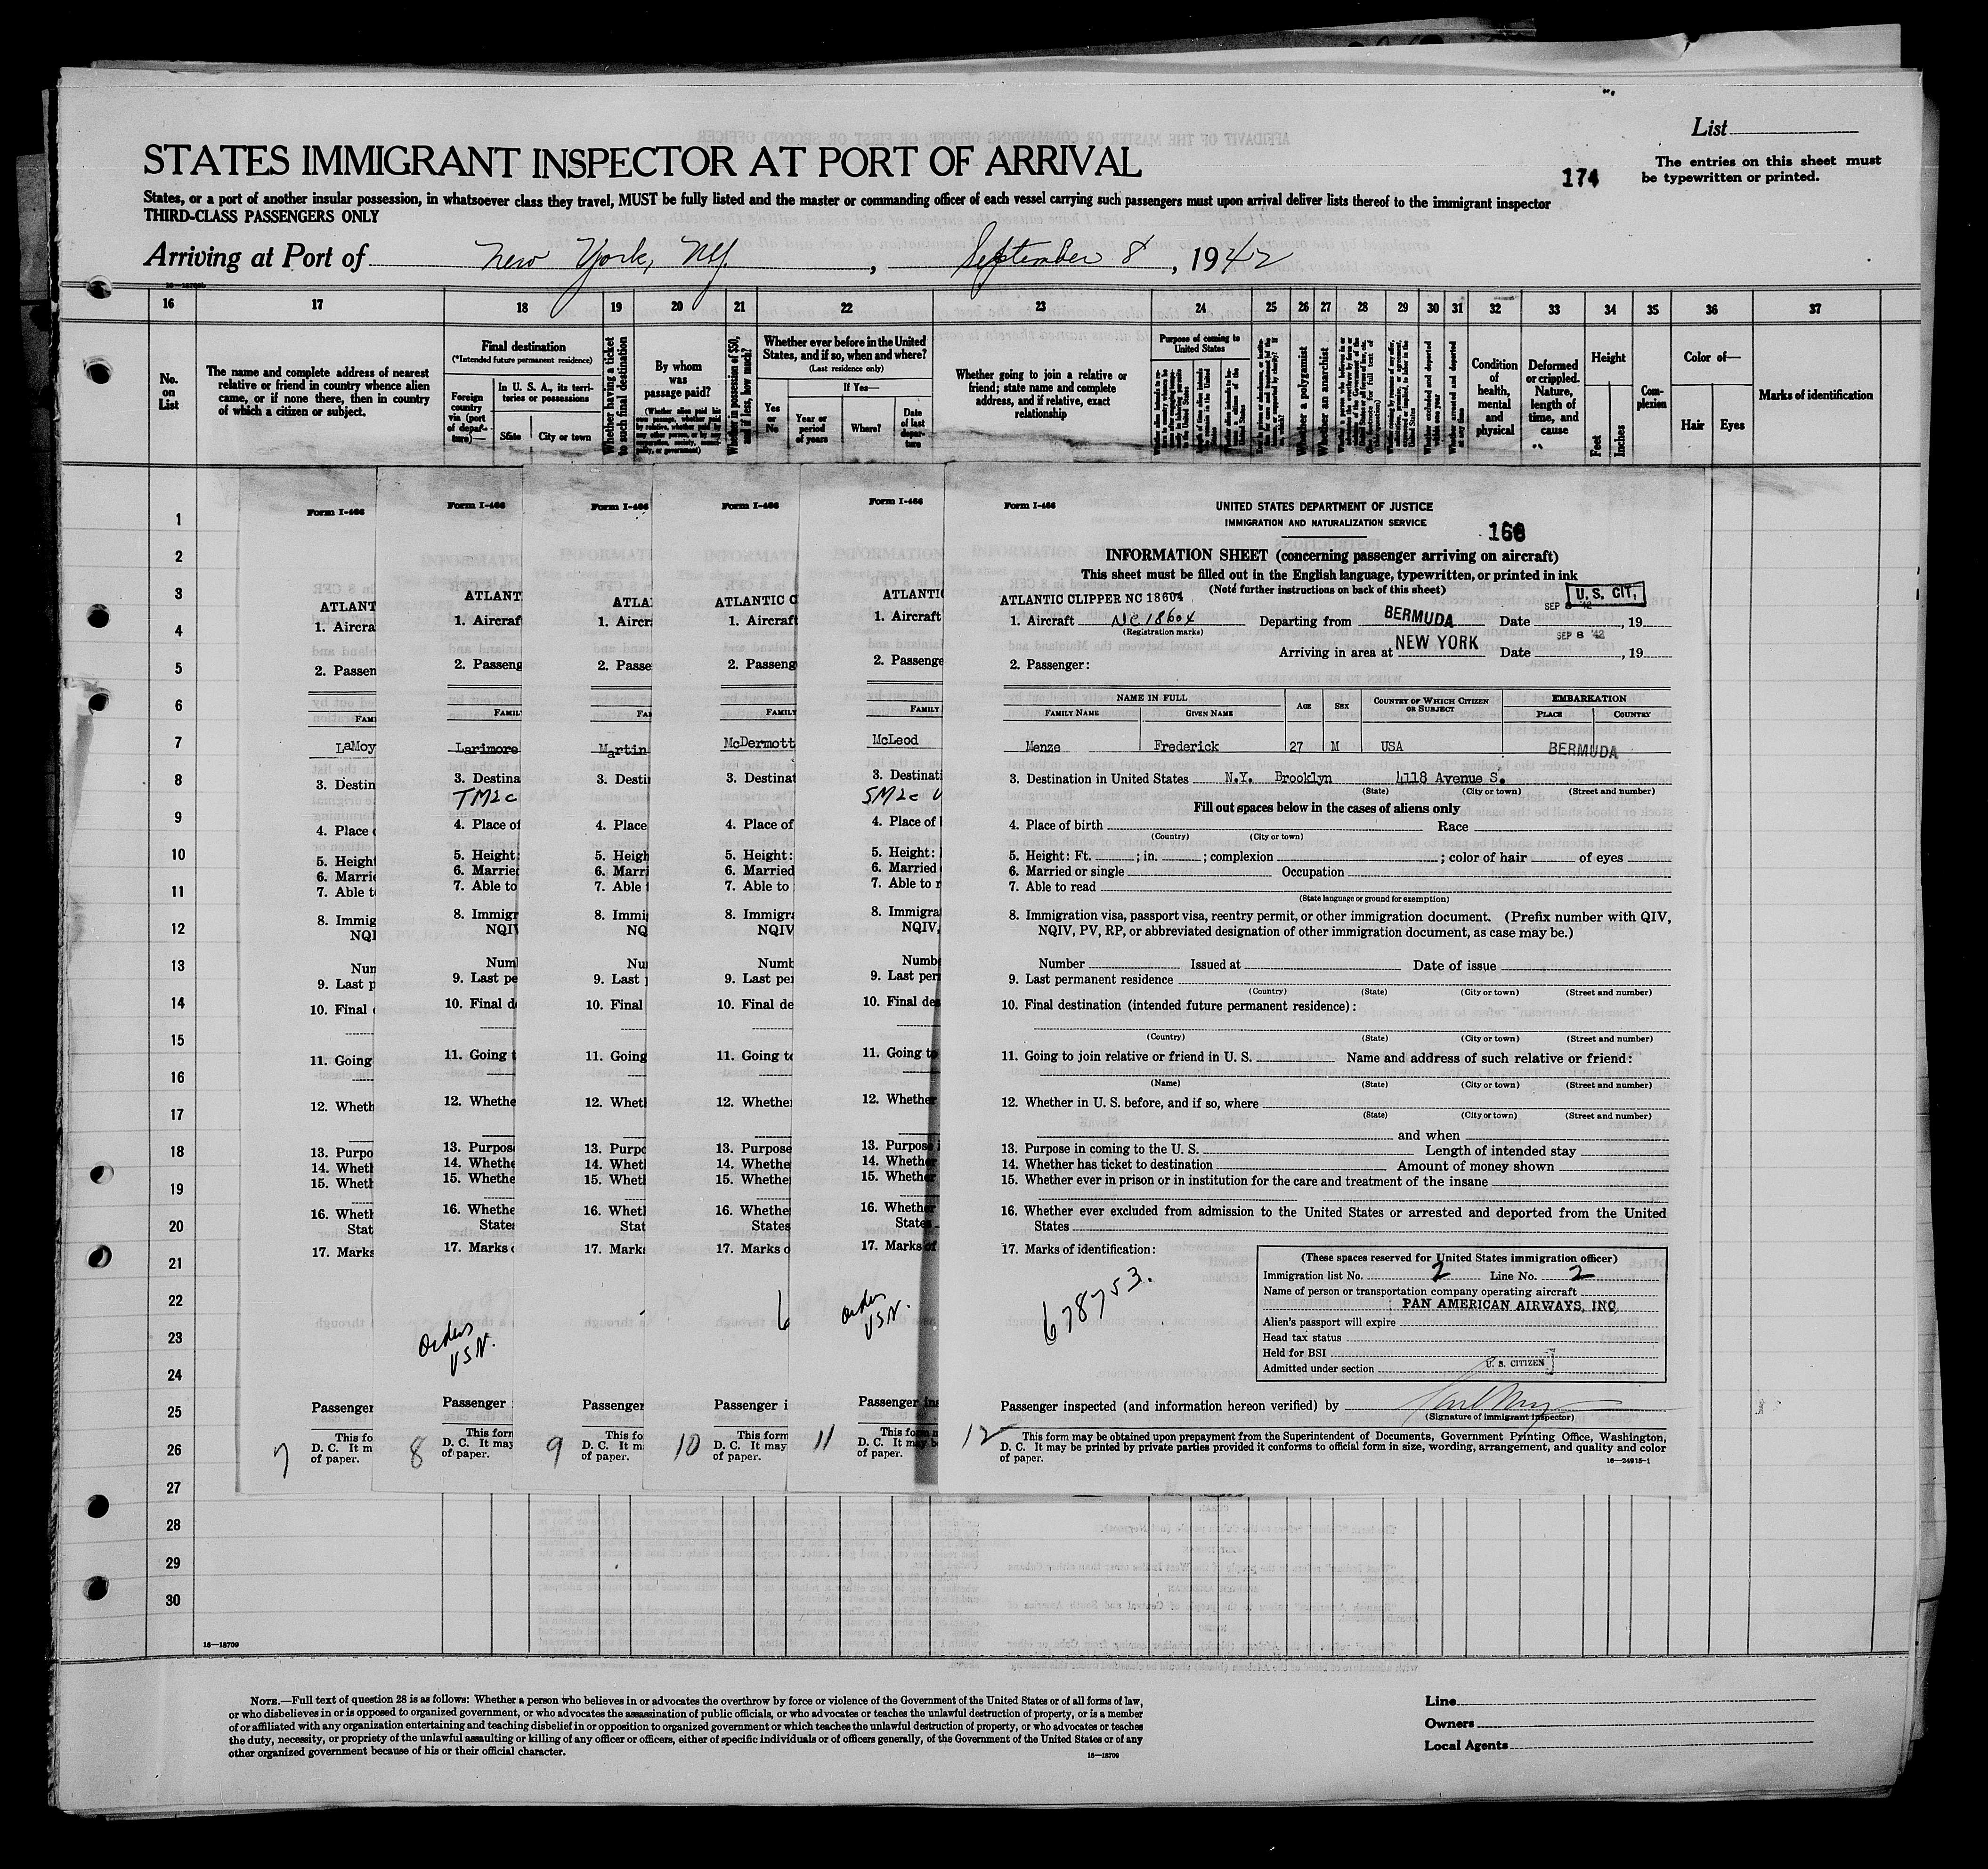 List
STATES IMMIGRANT INSPECTOR AT PORT OF ARRIVAL
174
The entries on this sheet must
be typewritten or printed.
States, or a port of another insular possession, in whatsoever class they travel, MUST be fully listed and the master or commanding officer of each vessel carrying such passengers must upon arrival deliver lists thereof to the immigrant inspector
THIRD-CLASS PASSENGERS ONLY
Arriving at Port of New York, NY, September 8, 1942
16 17 18 19 20 21 22 23 24 25 26 27 28 29 30 31 32 33 34 35 36 37
No.
on
List
The name and complete address of nearest
relative or friend in country whence alien
came, or if none there, then in country
of which a citizen or subject.
Final destination
(*Intended future permanent residence)
Foreign
country
via (port
of depar-
ture)—
In U. S. A., its terri-
tories or possessions
State
City or town
Whether having a ticket
to such final destination
By whom
was
passage paid?
Whether in possession of $50,
and if less, how much?
Whether ever before in the United
States, and if so, when and where?
(Last residence only)
Yes
or
No
If Yes—
Year or
period
of years
Where?
Date
of last
depar-
ture
Whether going to join a relative or
friend; state name and complete
address, and if relative, exact
relationship
Purpose of coming to
United States
Whether a polygamist
Whether an anarchist
Whether excluded and deported
within one year
Whether arrested and deported
at any time
Condition
of
health,
mental
and
physical
Deformed
or crippled.
Nature,
length of
time, and
cause
Height
Feet
Inches
Com-
plexion
Color of—
Hair
Eyes
Marks of identification
1
2
3
4
5
6
7
8
9
10
11
12
13
14
15
16
17
18
19
20
21
22
23
24
25
26
27
28
29
30
16—18709
Form I-466
ATLANT
1. Aircra
2. Passen
FAMI
LaMoy
3. Destin
4. Place
5. Height
6. Marrie
7. Able t
8. Immig
NQI
Nun
9. Last p
10. Final
11. Going
12. Wheth
13. Purpo
14. Wheth
15. Wheth
16. Wheth
Stat
17. Marks
Passenger
This fo
D. C. It m
of paper.
7
Form I-466
ATLANT
1. Aircraf
2. Passeng
FAMILY
Larimore
3. Destina
TM2c
4. Place of
5. Height:
6. Married
7. Able to
8. Immigr
NQIV
Numl
9. Last pe
10. Final d
11. Going t
12. Whethe
13. Purpose
14. Whethe
15. Whethe
16. Whethe
States
17. Marks
Orders
USN.
Passenger
This form
D. C. It may
of paper.
8
Form I-466
ATLA
1. Aircr
2. Passe
FA
Martin
3. Desti
4. Place
5. Heigh
6. Marri
7. Able
8. Immi
NQ
Nu
9. Last
10. Final
11. Going
12. Whet
13. Purpo
14. Whet
15. Whet
16. Whet
Stat
17. Mark
Passenger
This fo
D. C. It m
of paper.
9
Form I-466
ATLANTIC C
1. Aircraft
2. Passeng
FAMILY
McDermott
3. Destinat
4. Place of
5. Height:
6. Married
7. Able to
8. Immigra
NQIV
Numb
9. Last per
10. Final de
11. Going to
12. Whether
13. Purpose
14. Whethe
15. Whethe
16. Whethe
States
17. Marks o
6
Passenger i
This form
D. C. It may
of paper.
10
Form I-466
ATLANTIC
1. Aircraft
2. Passenge
FAMILY
McLeod
3. Destinati
SM2c U
4. Place of
5. Height:
6. Married
7. Able to r
8. Immigra
NQIV,
Numbe
9. Last per
10. Final des
11. Going to
12. Whether
13. Purpose
14. Whether
15. Whether
16. Whether
States
17. Marks of
Orders
USN.
Passenger ins
This form
D. C. It may b
of paper.
11
Form I-466
UNITED STATES DEPARTMENT OF JUSTICE
IMMIGRATION AND NATURALIZATION SERVICE
INFORMATION SHEET (concerning passenger arriving on aircraft)
This sheet must be filled out in the English language, typewritten, or printed in ink
(Note further instructions on back of this sheet)
U. S. CIT.
ATLANTIC CLIPPER NC 18604
1. Aircraft NC18604 Departing from BERMUDA Date SEP 8 '42, 19
(Registration marks)
Arriving in area at NEW YORK Date SEP 8 '42, 19
2. Passenger:
NAME IN FULL
FAMILY NAME GIVEN NAME AGE SEX COUNTRY OF WHICH CITIZEN
OR SUBJECT EMBARKATION
PLACE COUNTRY
Menze Frederick 27 M USA BERMUDA
3. Destination in United States N.Y. Brooklyn 4118 Avenue S.
(State) (City or town) (Street and number)
Fill out spaces below in the cases of aliens only
4. Place of birth Race
(Country) (City or town)
5. Height: Ft. ; in. ; complexion ; color of hair of eyes
6. Married or single Occupation
7. Able to read
(State language or ground for exemption)
8. Immigration visa, passport visa, reentry permit, or other immigration document. (Prefix number with QIV,
NQIV, PV, RP, or abbreviated designation of other immigration document, as case may be.)
Number Issued at Date of issue
9. Last permanent residence
(Country) (State) (City or town) (Street and number)
10. Final destination (intended future permanent residence):
(Country) (State) (City or town) (Street and number)
11. Going to join relative or friend in U. S. Name and address of such relative or friend:
(Name) (State) (City or town) (Street and number)
12. Whether in U. S. before, and if so, where
(State) (City or town) (Street and number)
and when
13. Purpose in coming to the U. S. Length of intended stay
14. Whether has ticket to destination Amount of money shown
15. Whether ever in prison or in institution for the care and treatment of the insane
16. Whether ever excluded from admission to the United States or arrested and deported from the United
States
17. Marks of identification:
678753.
(These spaces reserved for United States immigration officer)
Immigration list No. 2 Line No. 2
Name of person or transportation company operating aircraft
PAN AMERICAN AIRWAYS, INC
Alien's passport will expire
Head tax status
Held for BSI
Admitted under section U. S. CITIZEN
Passenger inspected (and information hereon verified) by
(Signature of immigrant inspector)
12
This form may be obtained upon prepayment from the Superintendent of Documents, Government Printing Office, Washington,
D. C. It may be printed by private parties provided it conforms to official form in size, wording, arrangement, and quality and color
of paper.
16—24915-1
NOTE.—Full text of question 28 is as follows: Whether a person who believes in or advocates the overthrow by force or violence of the Government of the United States or of all forms of law,
or who disbelieves in or is opposed to organized government, or who advocates the assassination of public officials, or who advocates or teaches the unlawful destruction of property, or is a member
of or affiliated with any organization entertaining and teaching disbelief in or opposition to organized government or which teaches the unlawful destruction of property, or who advocates or teaches
the duty, necessity, or propriety of the unlawful assaulting or killing of any officer or officers, either of specific individuals or of officers generally, of the Government of the United States or of any
other organized government because of his or their official character.
16—18709
Line
Owners
Local Agents